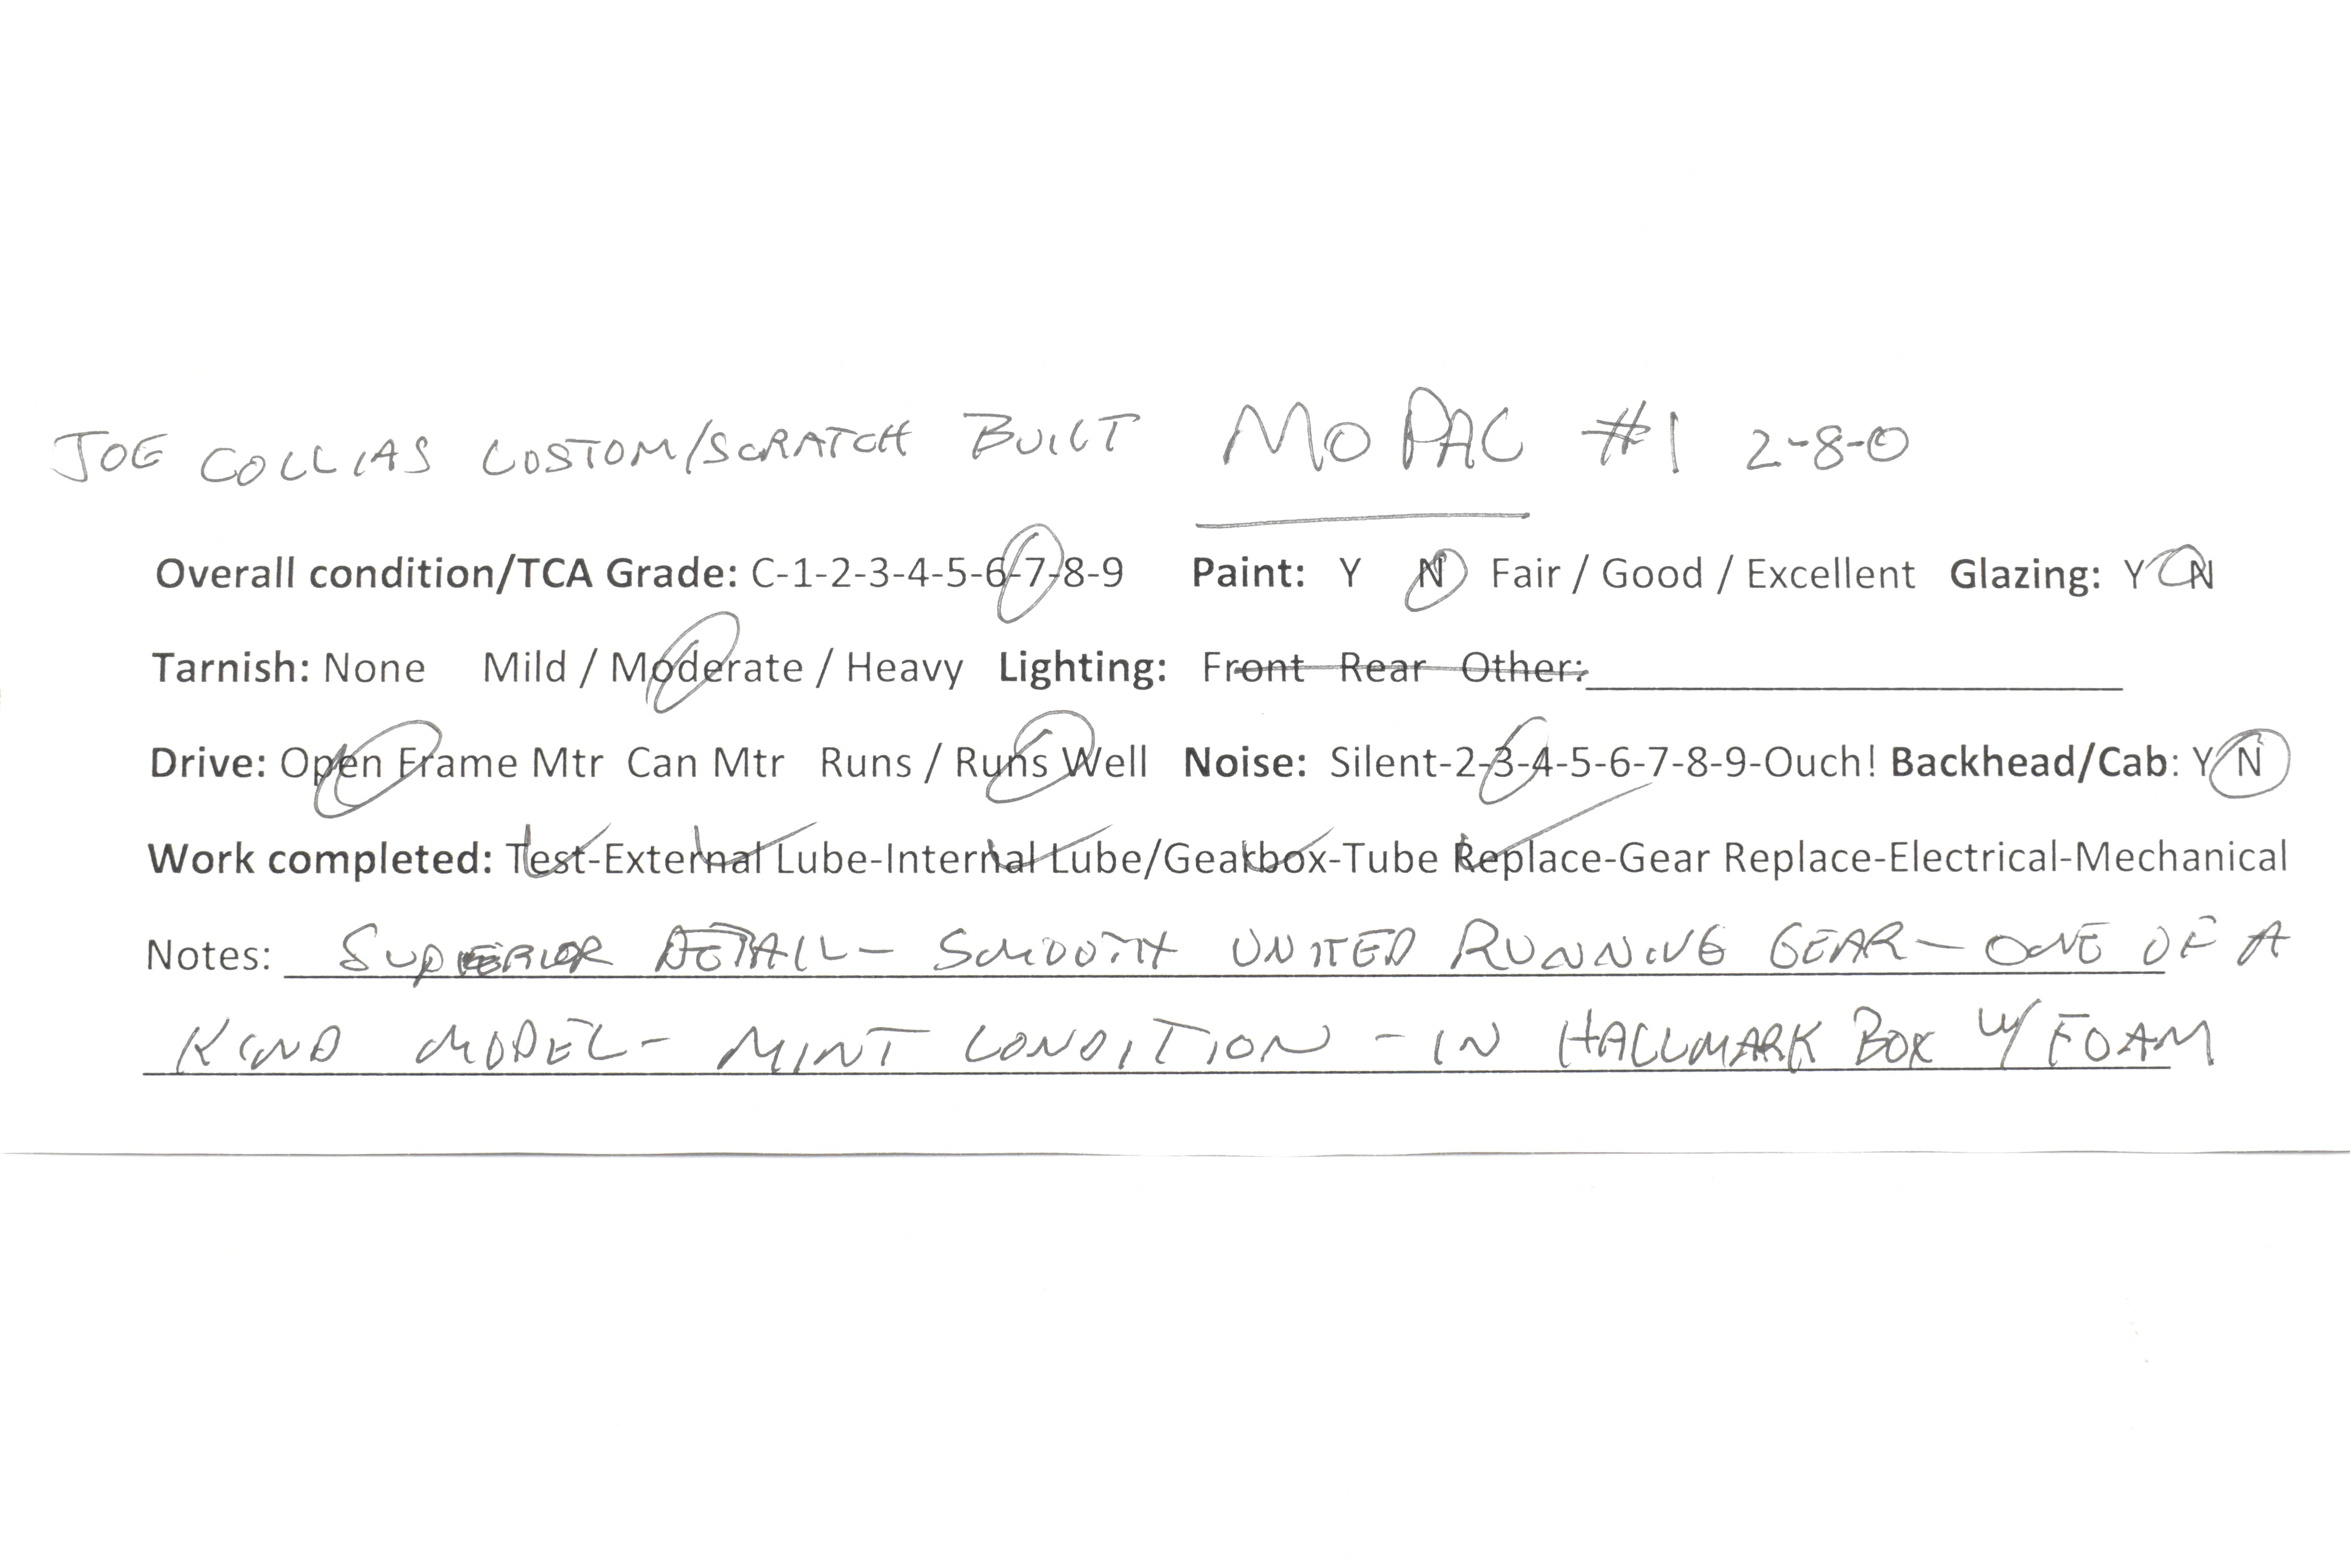 JOE COLLIAS CUSTOM/SCRATCH BUILT MOPAC #1 2-8-0
Overall condition/TCA Grade: C-1-2-3-4-5-6-7-8-9 Paint: Y N Fair / Good / Excellent Glazing: Y N
Tarnish: None Mild / Moderate / Heavy Lighting: Front Rear Other:
Drive: Open Frame Mtr Can Mtr Runs / Runs Well Noise: Silent-2-3-4-5-6-7-8-9-Ouch! Backhead/Cab: Y N
Work completed: Test-External Lube-Internal Lube/Gearbox-Tube Replace-Gear Replace-Electrical-Mechanical
Notes: SUPERIOR DETAIL - SMOOTH UNITED RUNNING GEAR - ONE OF A
KIND MODEL - MINT CONDITION - IN HALLMARK BOX W/ FOAM